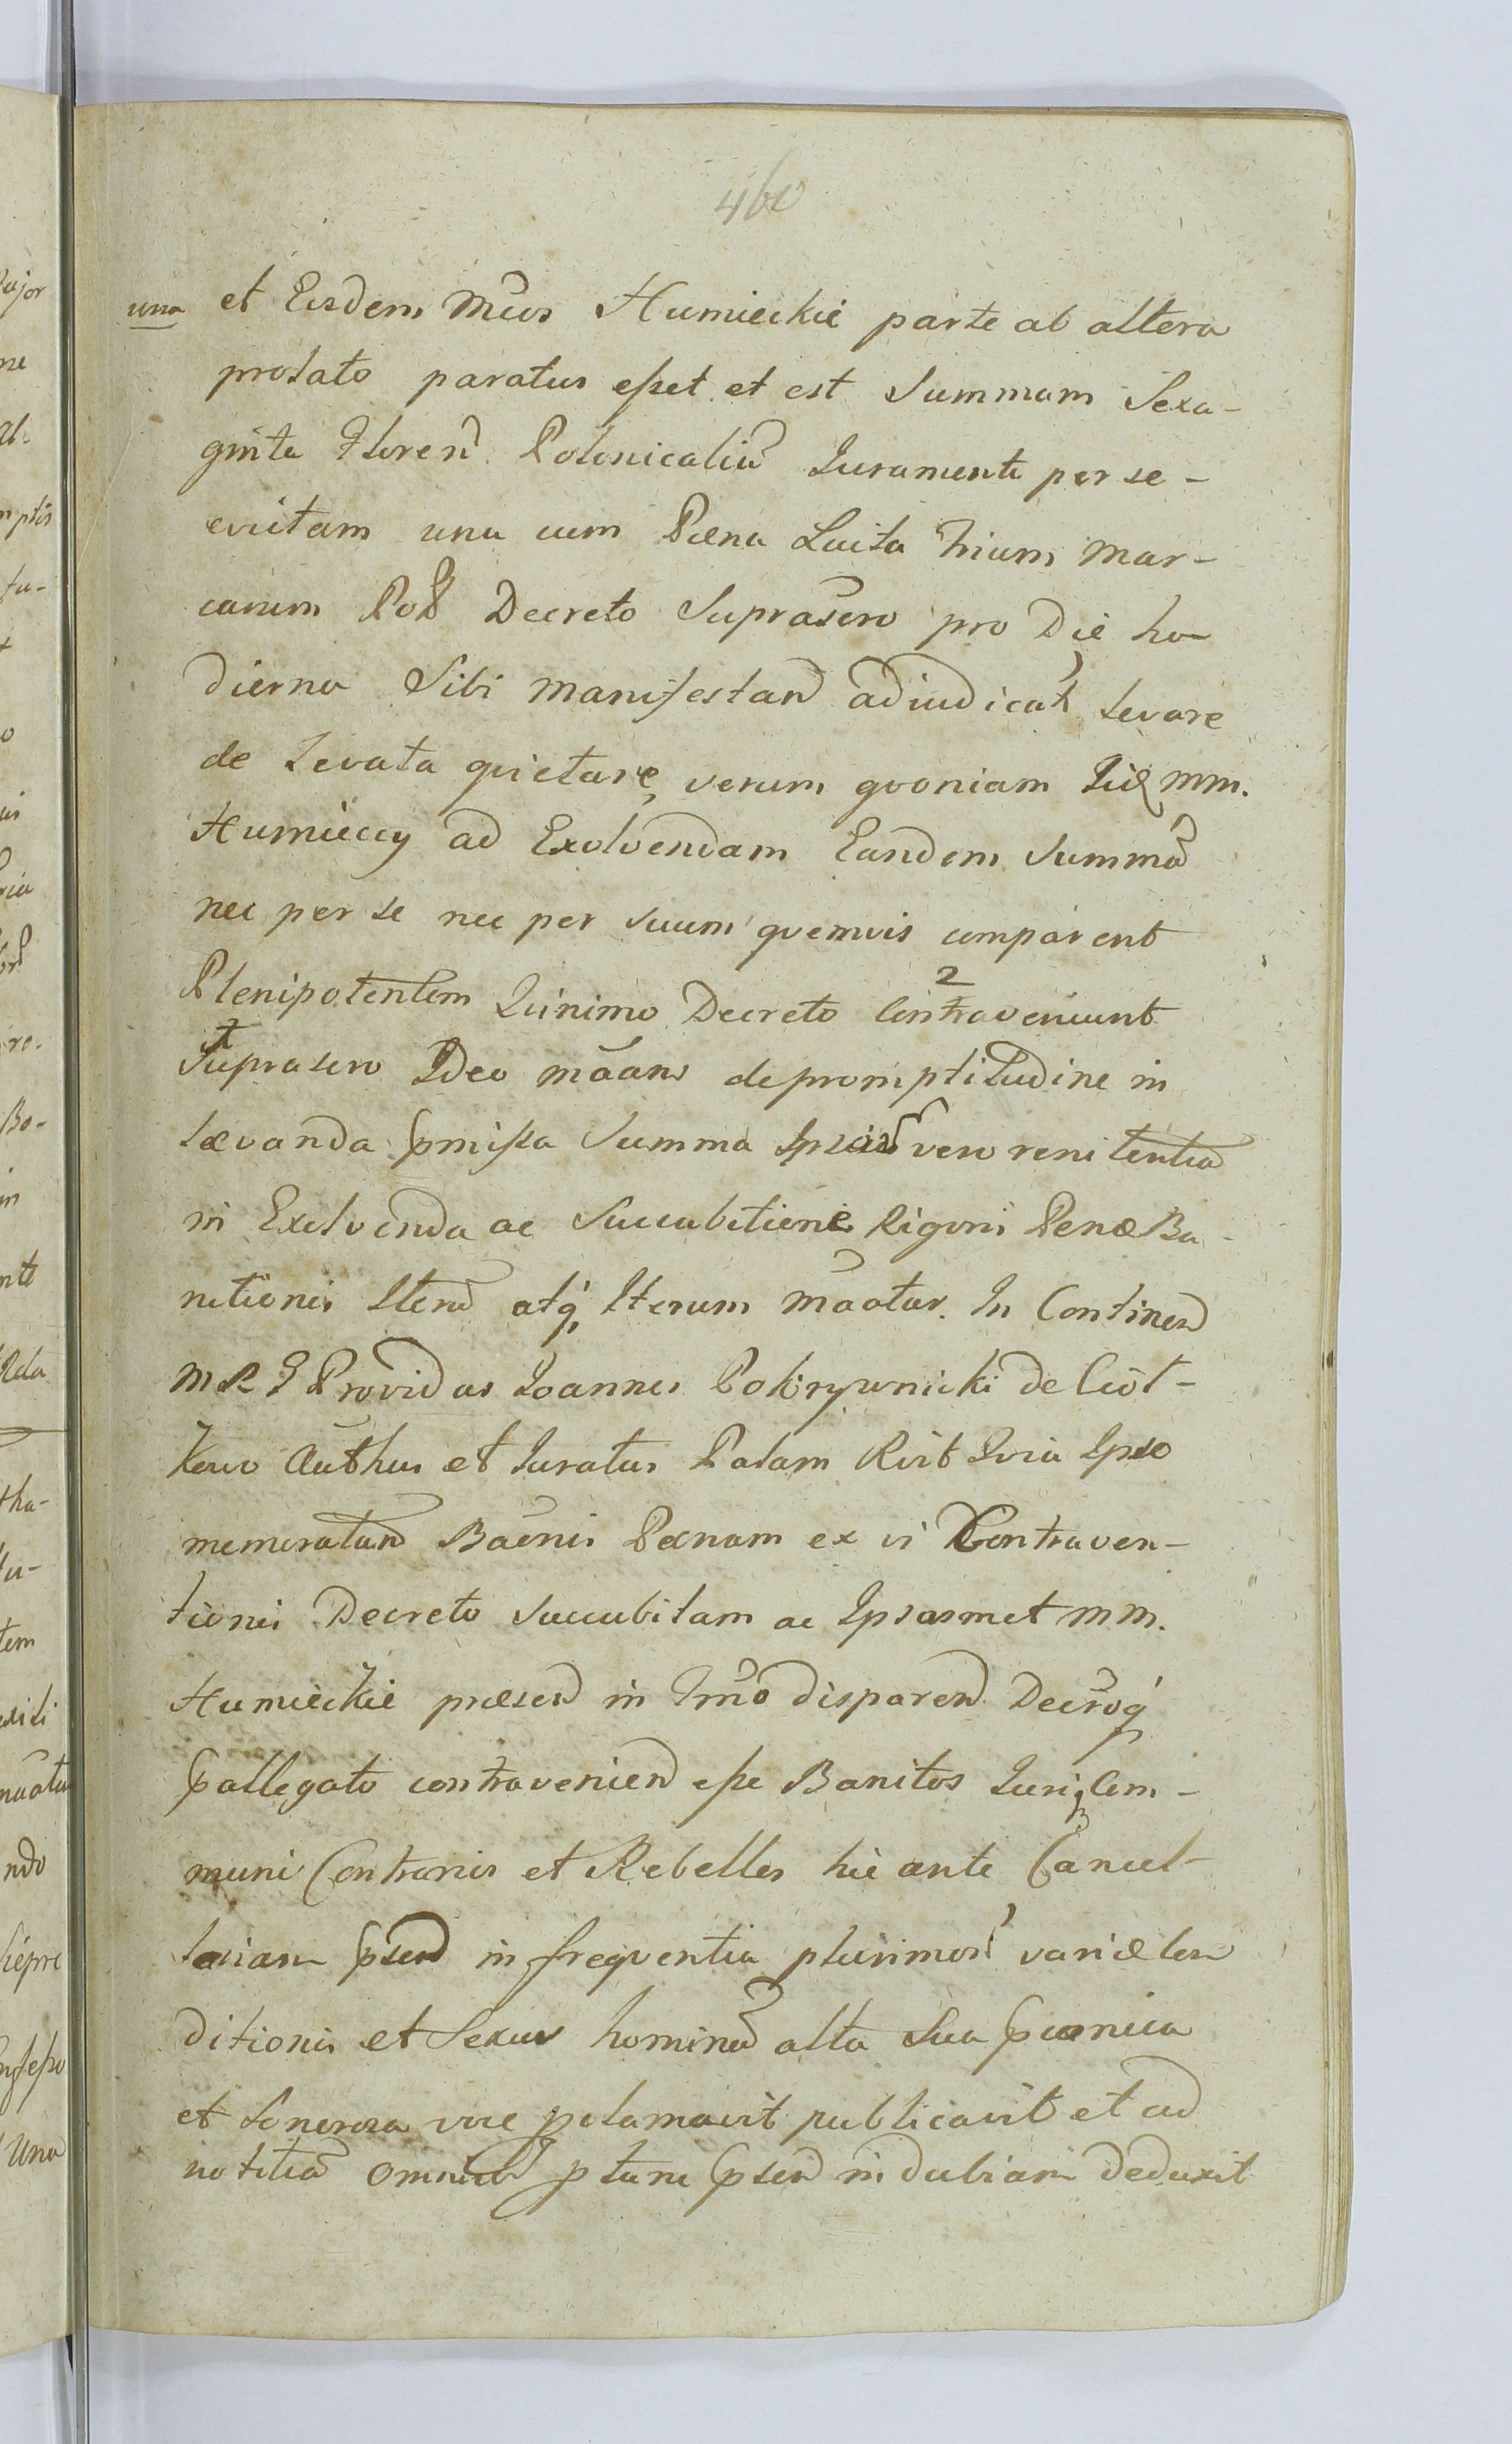 460
una et Eisdem Mcos Humieckie parte ab altera
prolato paratus esset et est Summam Sexa-
ginta Floren Polonicaliu Juramento per se-
evictam una cum Pæna Luita trium Mar-
carum Pol Decreto Suprascro pro Die ho-
dierna Sibi manifestand adiudicat levare
de Levata qvietare, verum qvoniam Iid MM.
Humieccy ad Exolvendam Eandem Summa
nec per se nec per suum qvemvis comparent
Plenipotentem Qvinimo Decreto Contraveniunt
Suprascro Ideo māans de promptitudine in
Lævanda pmissa Summa Ipsor vero renitentia
in Exolvenda ac Succubitione Rigoris Penæ Ba-
nitionis Iteru atq Iterum māatur. In Continen
MRG Providus Joannes Pokrzywnicki de Ciot-
kowo Authus et Juratus Palam Rvit Qvia Ipse
memoratam Baenis Pænam ex vi Contraven-
tionis Decreto succubitam ac Ipsosmet MM.
Humieckie præsen in Trno disparen Decroq
pallegato contravenien esse Banitos Juriq Com-
muni Contrarios et Rebelles hic ante Cancel-
lariam psen in freqventia plurimor variæ Con
ditionis et Sexus hominu alta Sua
et Sonorosa voce pclamavit publicavit et ad
notitia omniu plane psen indubiam deduxit